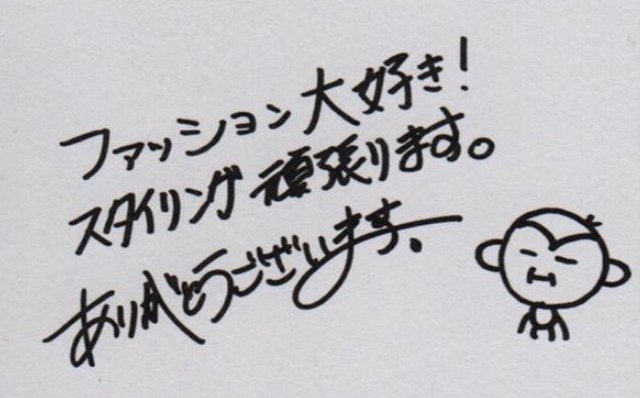 ファッション大好き!
スタイリング頑張ります。
ありがとうございます。